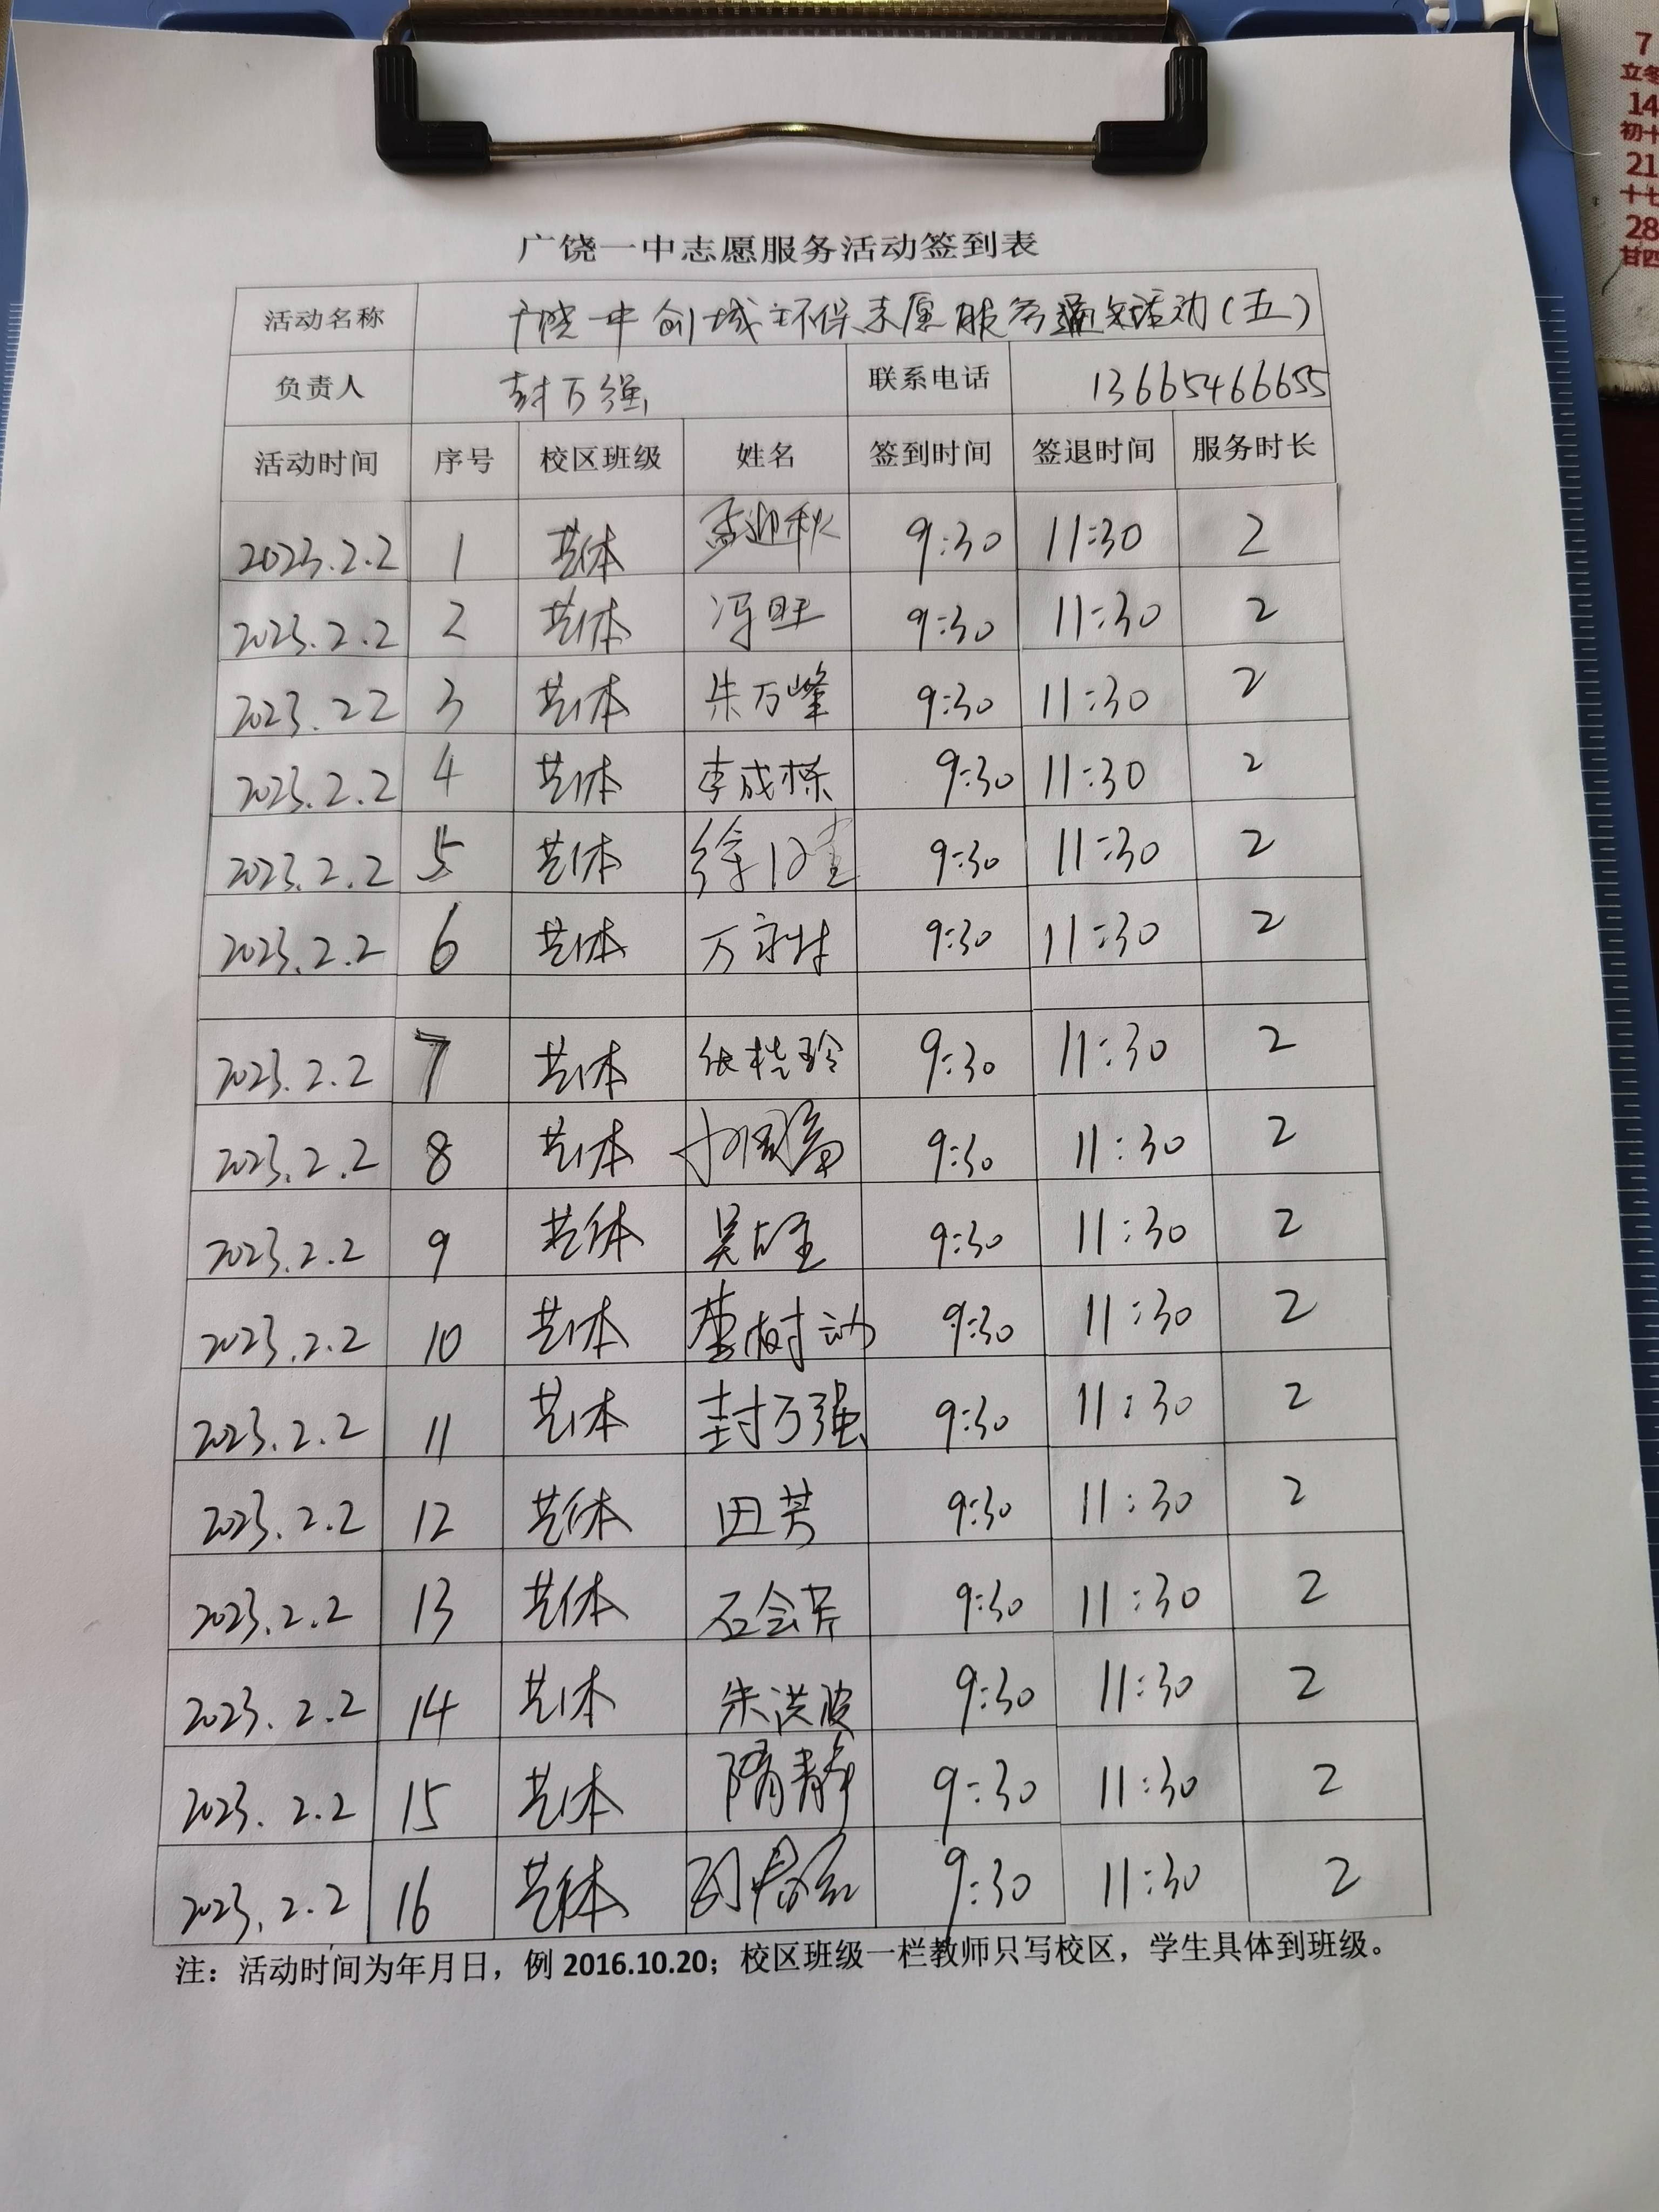 广饶一中志愿服务活动签到表
活动名称 广饶一中创城环保志愿服务活动(五)
负责人 封万强 联系电话 13665466655
活动时间 序号 校区班级 姓名 签到时间 签退时间 服务时长
2023.2.2 1 艺体 孟迎秋 9:30 11:30 2
2023.2.2 2 艺体 冯旺 9:30 11:30 2
2023.22 3 艺体 朱万峰 9:30 11:30 2
2023.2.2 4 艺体 李成栋 9:30 11:30 2
2023.2.2 5 艺体 9:30 11:30 2
2023.2.2 6 艺体 9:30 11:30 2
2023.2.2 7 艺体 张桂玲 9:30 11:30 2
2023.2.2 8 艺体 9:30 11:30 2
2023.2.2 9 艺体 9:30 11:30 2
2023.2.2 10 艺体 董树动 9:30 11:30 2
2023.2.2 11 艺体 封万强 9:30 11:30 2
2023.2.2 12 艺体 田芳 9:30 11:30 2
2023.2.2 13 艺体 石会芹 9:30 11:30 2
2023.2.2 14 艺体 朱洪波 9:30 11:30 2
2023.2.2 15 艺体 隋静 9:30 11:30 2
2023.2.2 16 艺体 9:30 11:30 2
注：活动时间为年月日，例 2016.10.20；校区班级一栏教师只写校区，学生具体到班级。
7
14
21
十七
28
廿四